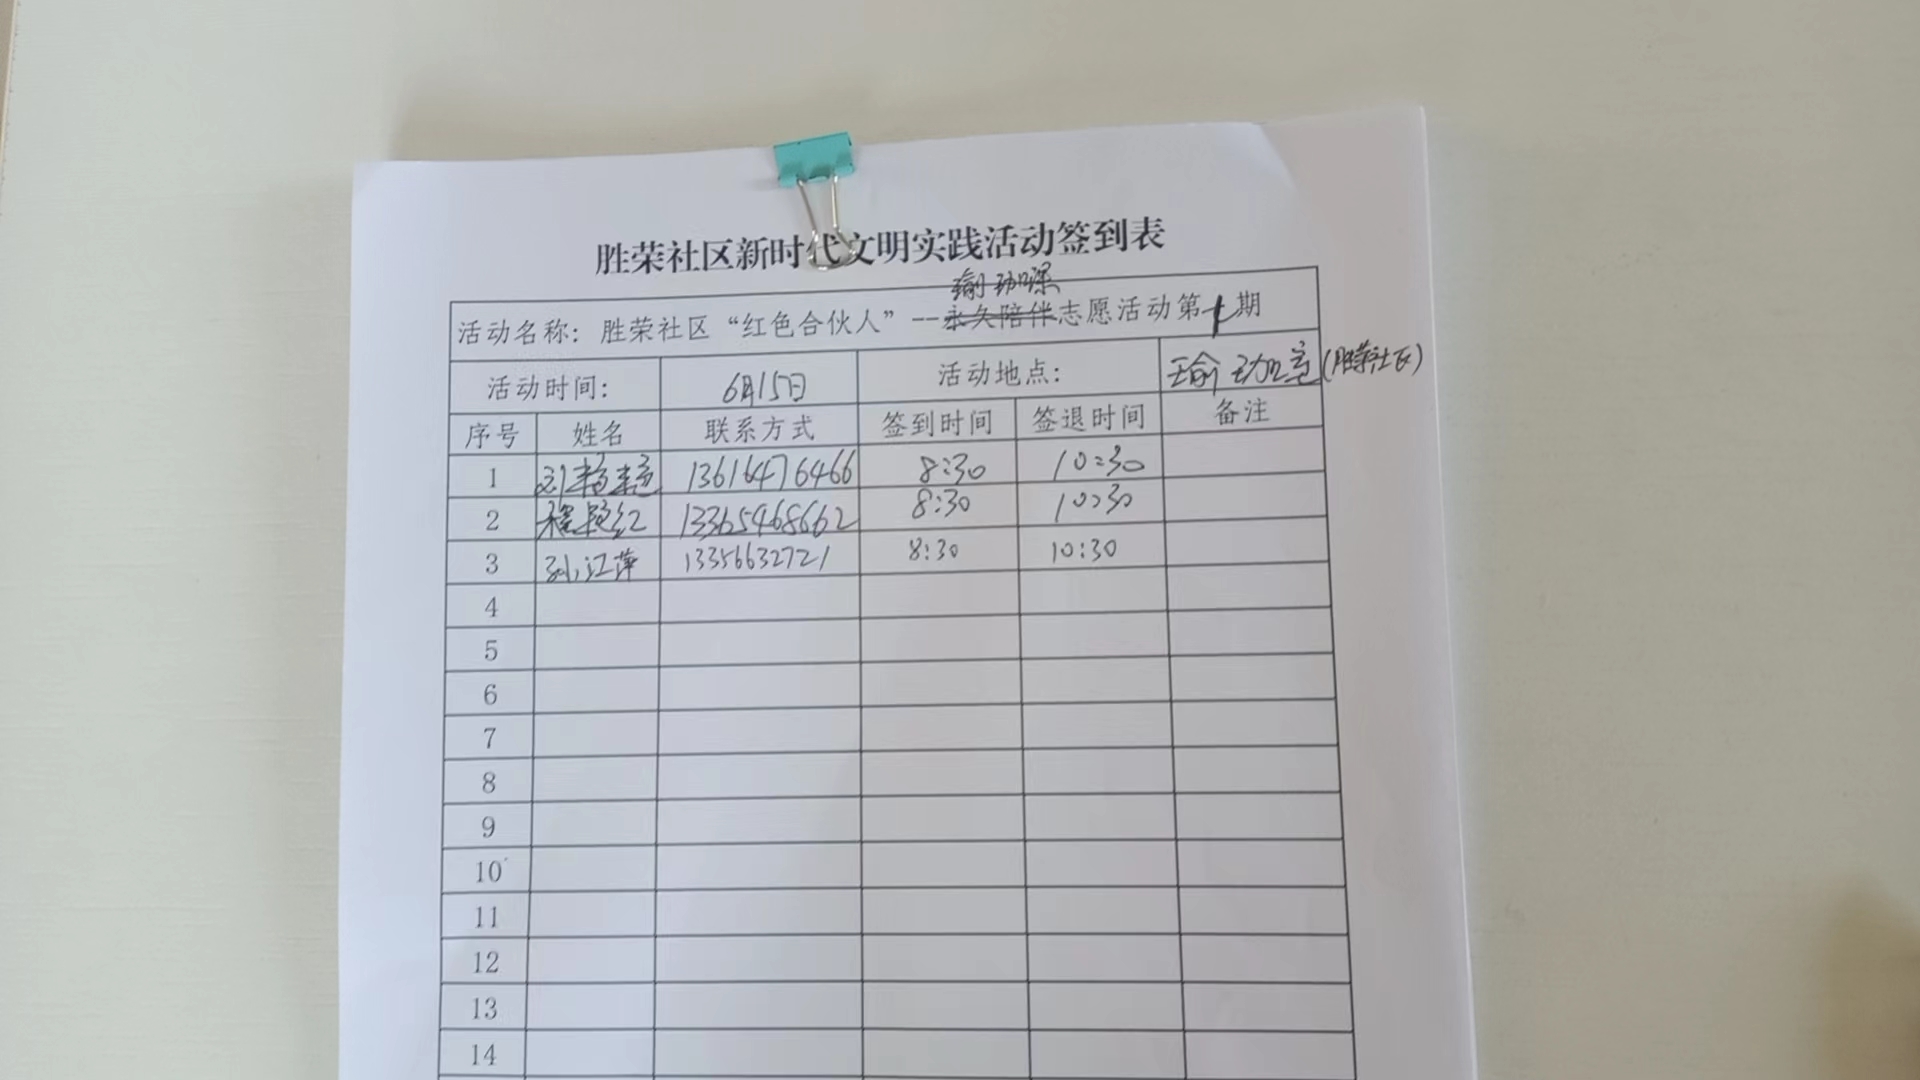 胜荣社区新时代文明实践活动签到表
瑜珈课
活动名称：胜荣社区“红色合伙人”--永久陪伴志愿活动第1期
活动时间： 6月15日 活动地点： 瑜珈室(胜荣社区)
序号 姓名 联系方式 签到时间 签退时间 备注
1 刘 13616476466 8:30 10:30
2 程 红 13365468662 8:30 10:30
3 孙江萍 13356632721 8:30 10:30
4
5
6
7
8
9
10
11
12
13
14